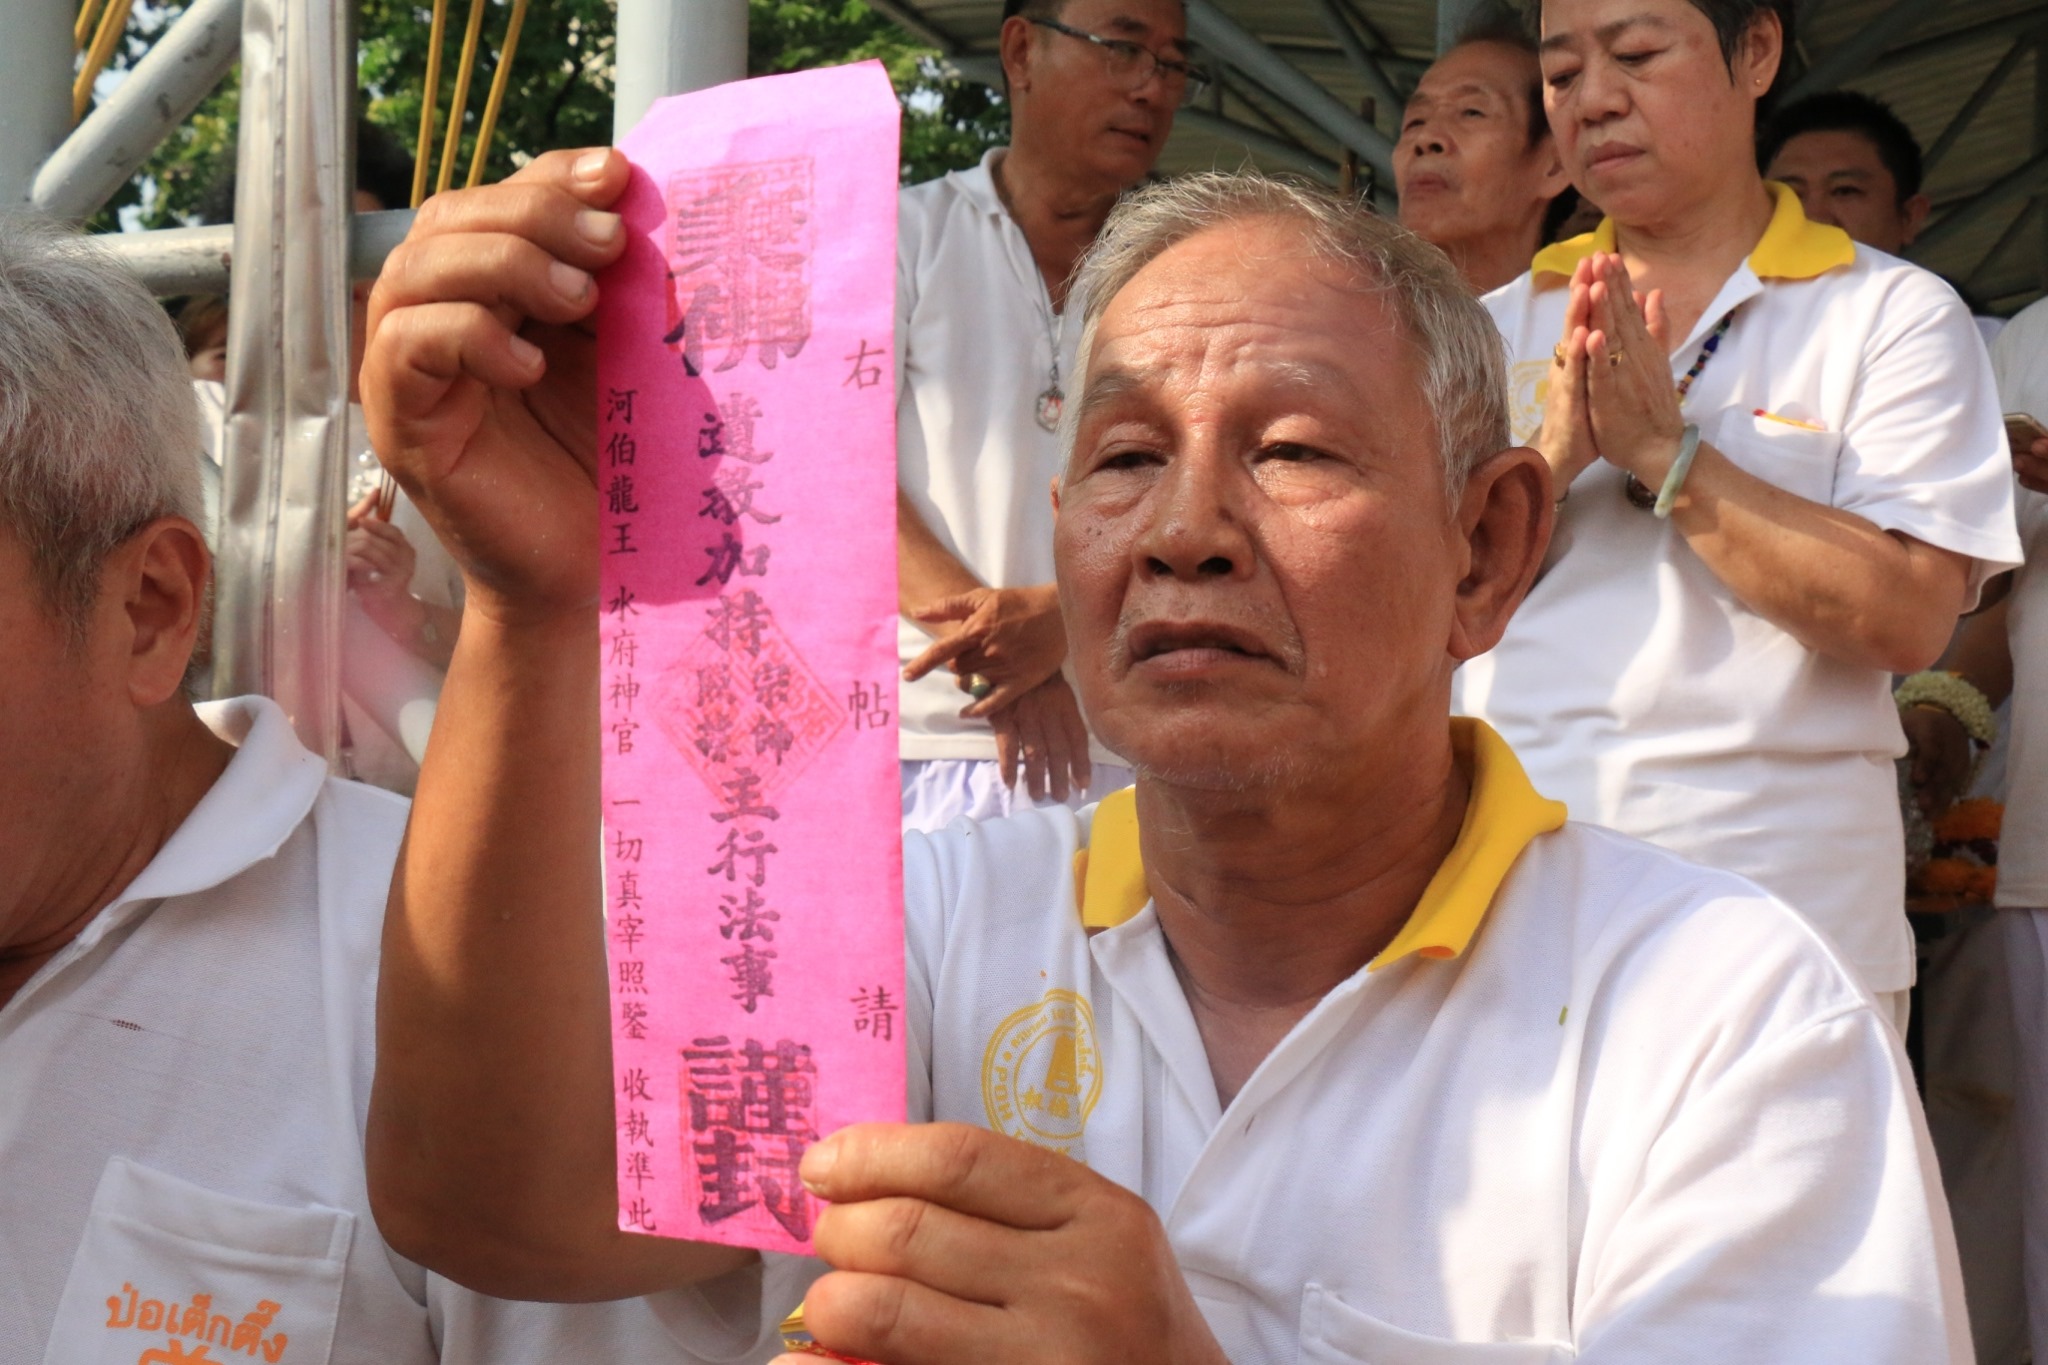 右 帖 請
秉佛遺教加持宗師興法主行法事謹封
河伯龍王 水府神官 一切真宰照鑒 收執準此
ป่อเต็กตึ๊ง